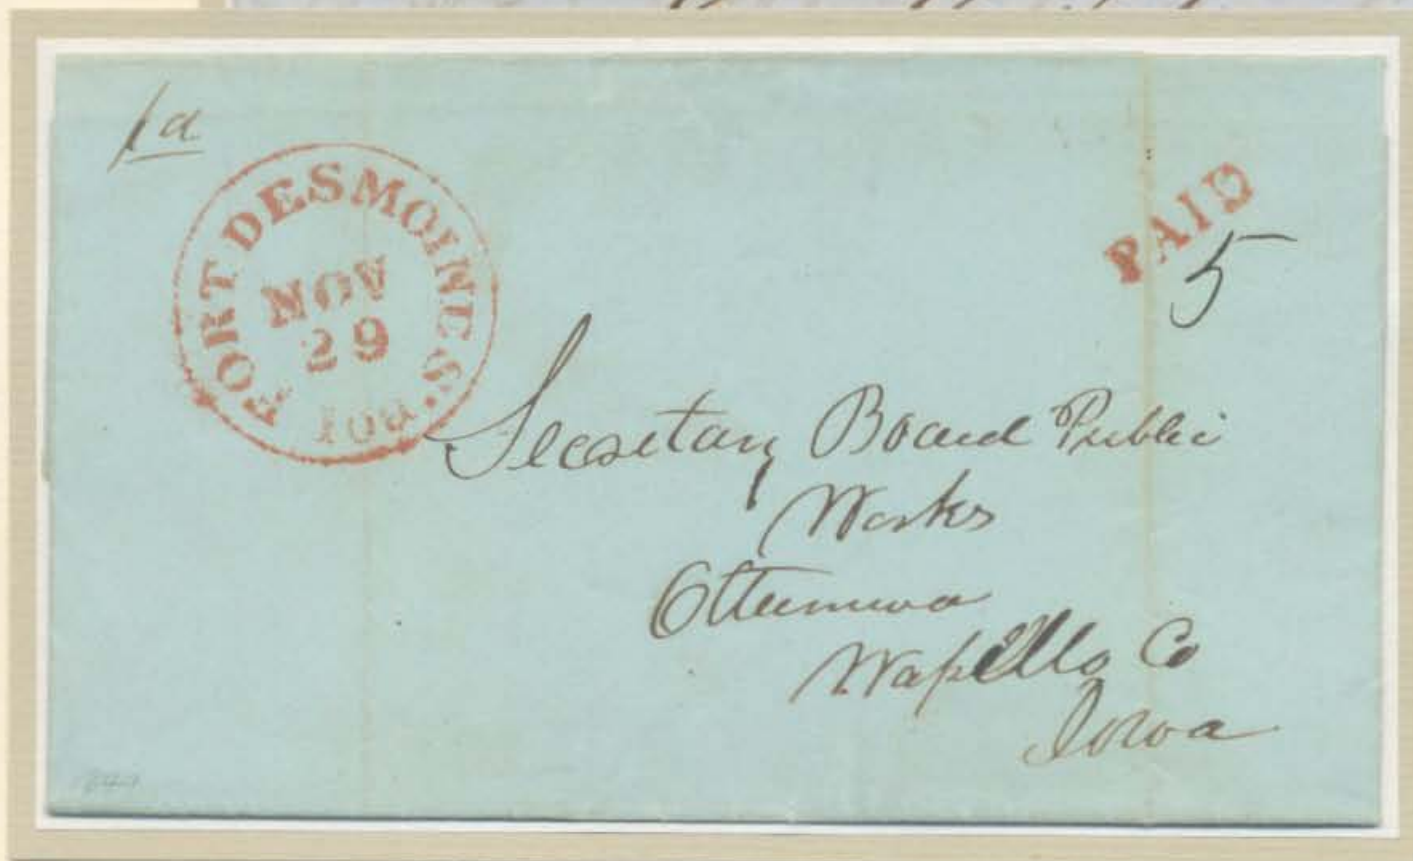 FORT DESMOINES'
NOV
29
Ioa
PAID
5
Secretary Board Public
Works
Ottumwa
Wapello Co
Iowa